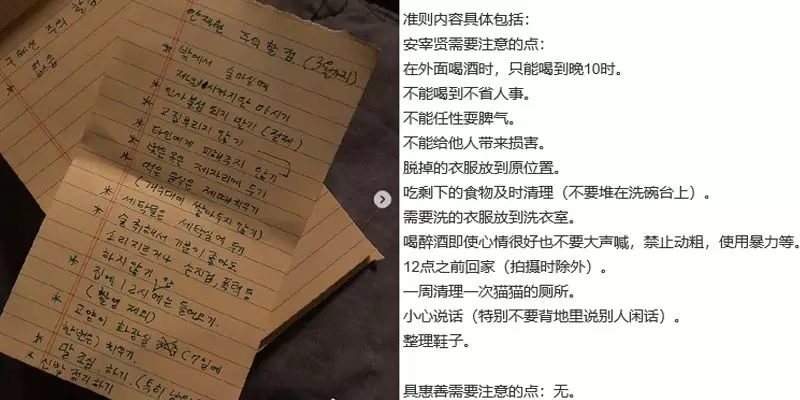 구혜선 주의
없음
안재현 주의 할 점
(3월까지)
* 밖에서 술마실때
저녁 10시까지만 마시기
* 인사불성 되지 말기 (절제)
* 고집부리지 않기
* 타인에게 피해주지 않기
* 벗은 옷은 제자리에 두기
* 먹은 음식은 제때 치우기
(개수대에 쌓아두지 않기)
* 세탁물은 세탁실에 두기
* 술 취해서 기분이 좋아도
소리지르거나 손찌검, 폭력 등
하지 않기
* 집에 12시 안에는 들어오기
(촬영 제외)
* 고양이 화장실 (7일에
한번은) 치우기
* 말 조심 하기 (특히
* 신발 정리하기
准则内容具体包括：
安宰贤需要注意的点：
在外面喝酒时，只能喝到晚10时。
不能喝到不省人事。
不能任性耍脾气。
不能给他人带来损害。
脱掉的衣服放到原位置。
吃剩下的食物及时清理（不要堆在洗碗台上）。
需要洗的衣服放到洗衣室。
喝醉酒即使心情很好也不要大声喊，禁止动粗，使用暴力等。
12点之前回家（拍摄时除外）。
一周清理一次猫猫的厕所。
小心说话（特别不要背地里说别人闲话）。
整理鞋子。
具惠善需要注意的点：无。